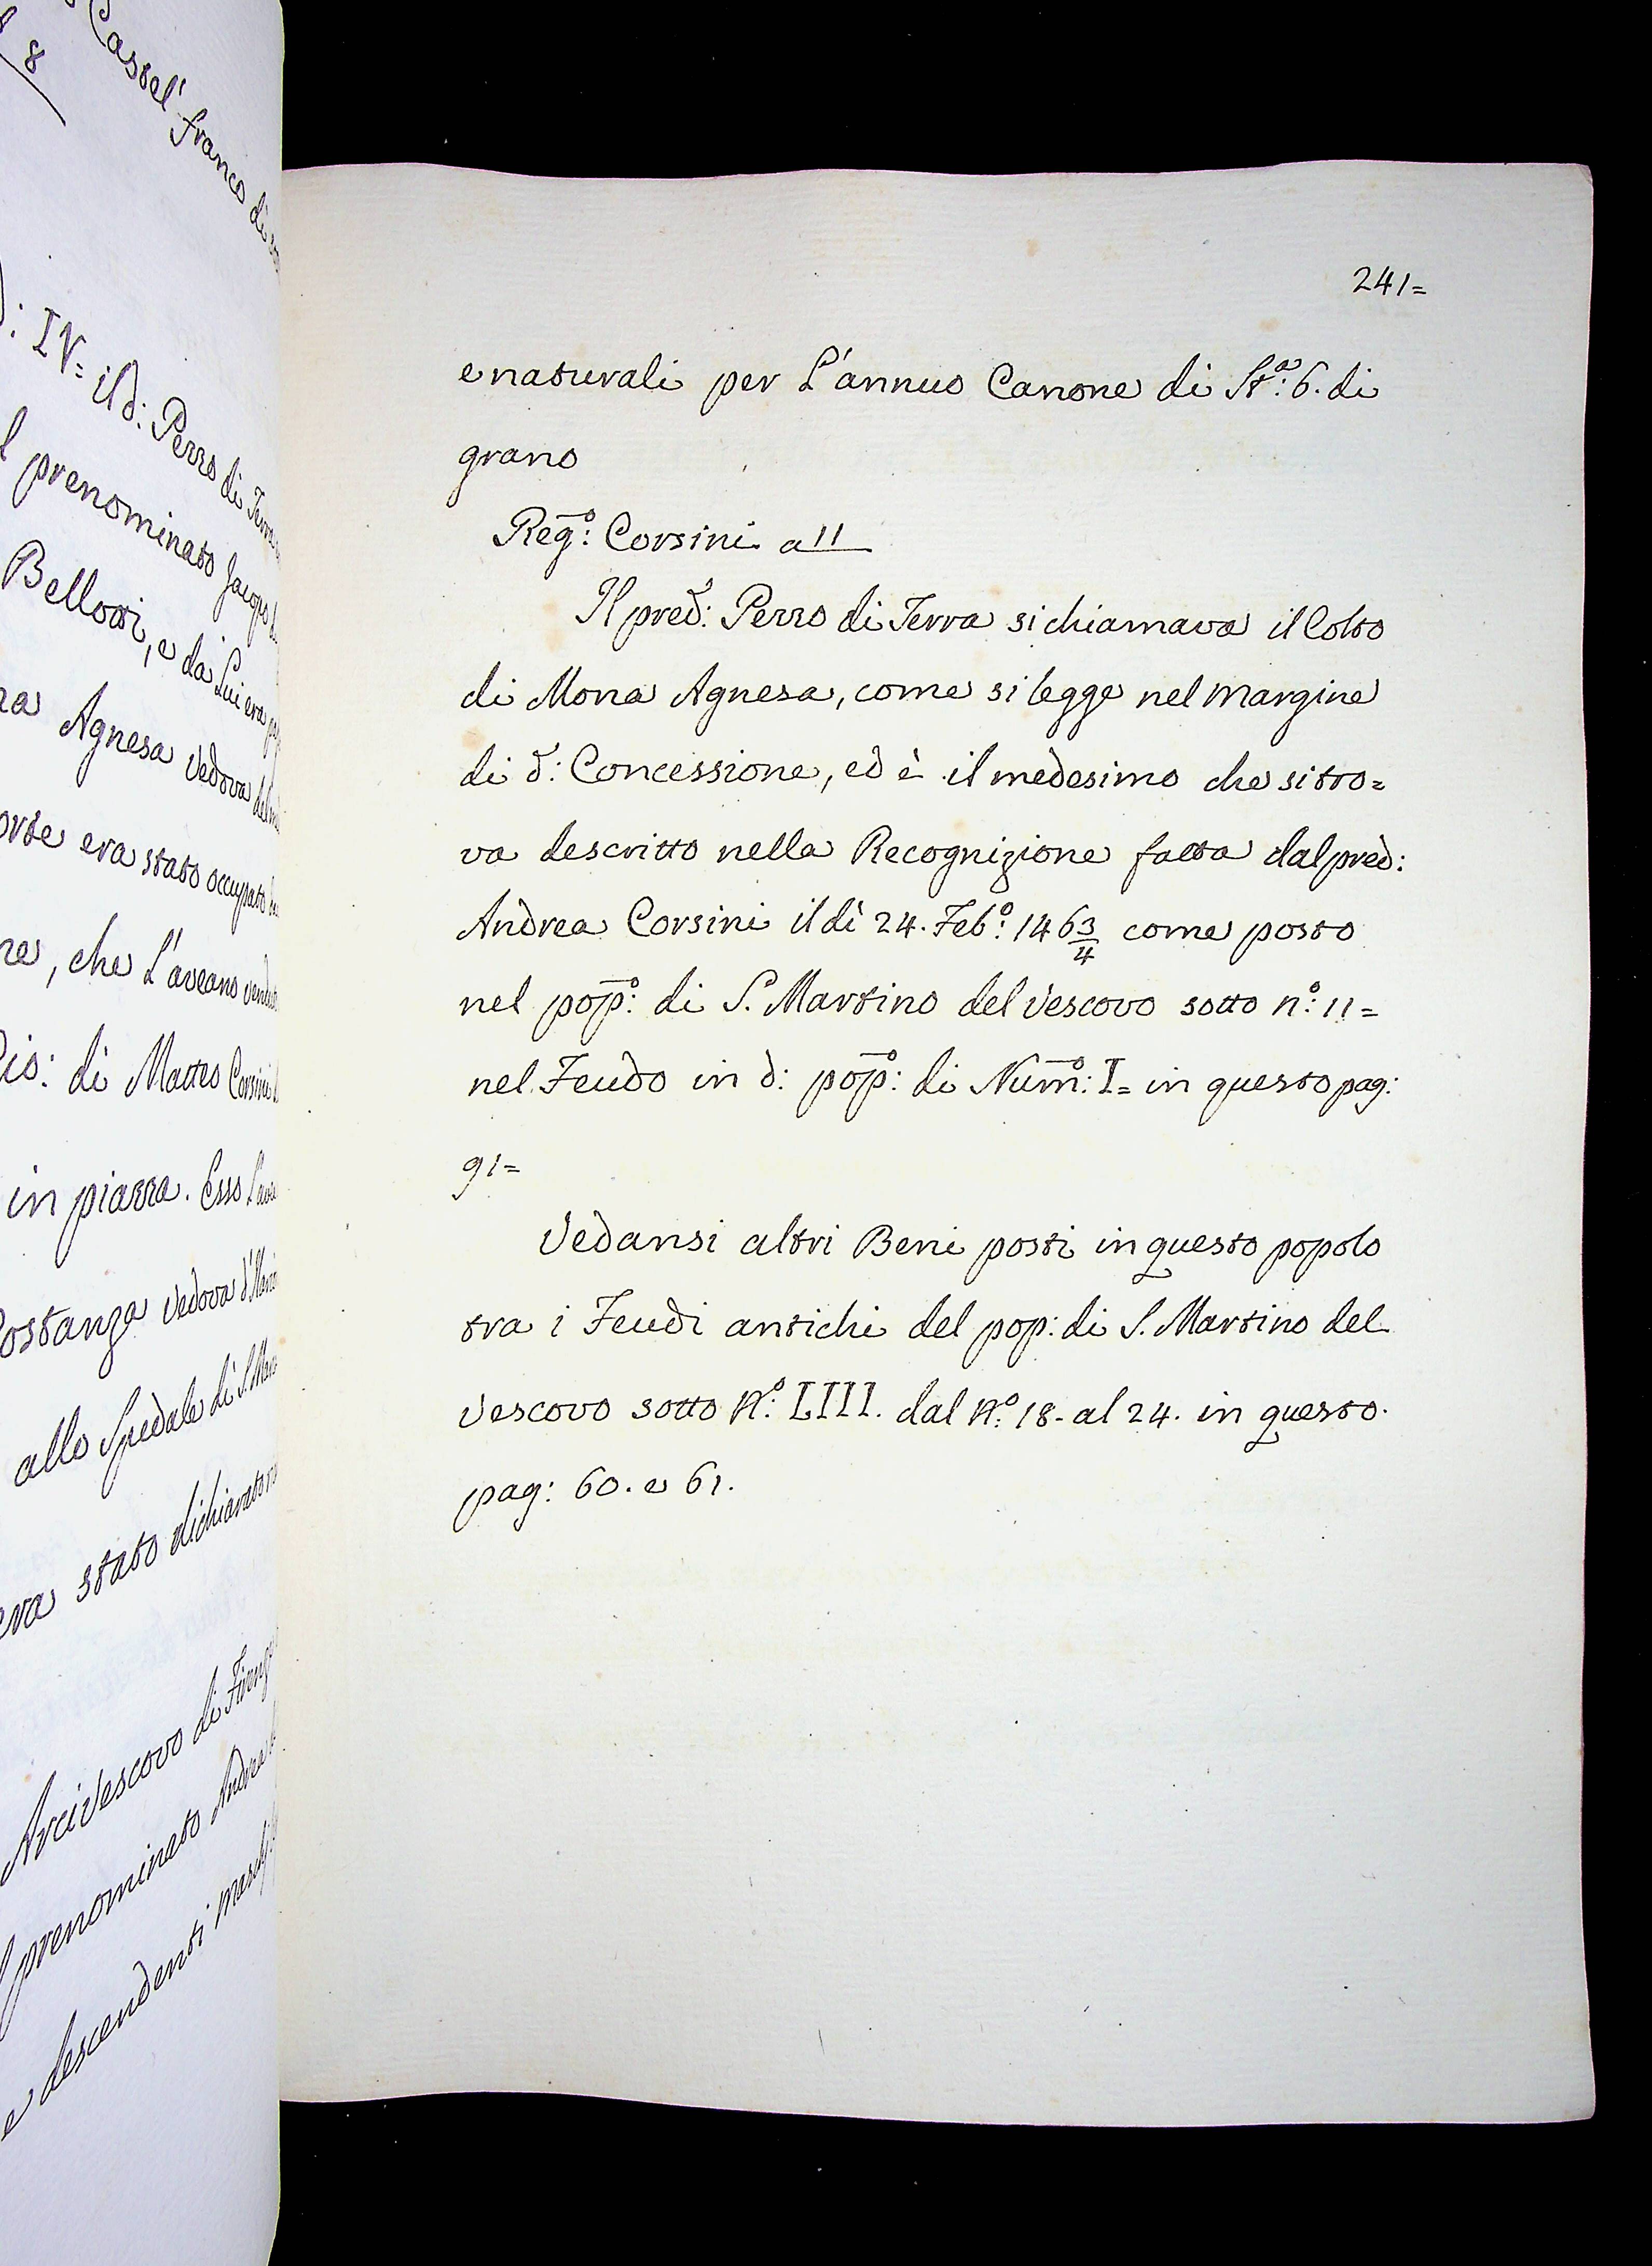 8
Cassel' franco di
IV= il d: Pezzo di Terra
prenominato Jacopo
Bellozzi, e da Lui era
Agnesa Vedova del
era stato occupato
, che L'aveano
di Matteo Corsini
in piazza. Esso
Costanza Vedova d'
allo Spedale di S.
stato dichiarato
Arcivescovo di
prenominato Andrea
e descendenti
241=
e naturali per L'annuo Canone di St.ª: 6. di
grano
Reg.º: Corsini a 11
Il pred.º: Pezzo di Terra si chiamava il Colto
di Mona Agnesa, come si legge nel margine
di d.: Concessione, ed è il medesimo che si tro=
va descritto nella Recognizione fatta dal pred:
Andrea Corsini il dì 24. Feb.º: 1463/4 come posto
nel pop.º: di S. Martino del Vescovo sotto n.º: 11=
nel Feudo in d: pop.º: di Num.º: I= in questo pag:
91=
Vedansi altri Beni posti in questo popolo
tra i Feudi antichi del pop: di S. Martino del
Vescovo sotto N.º: LIII. dal N.º: 18. al 24. in questo
pag: 60. e 61.